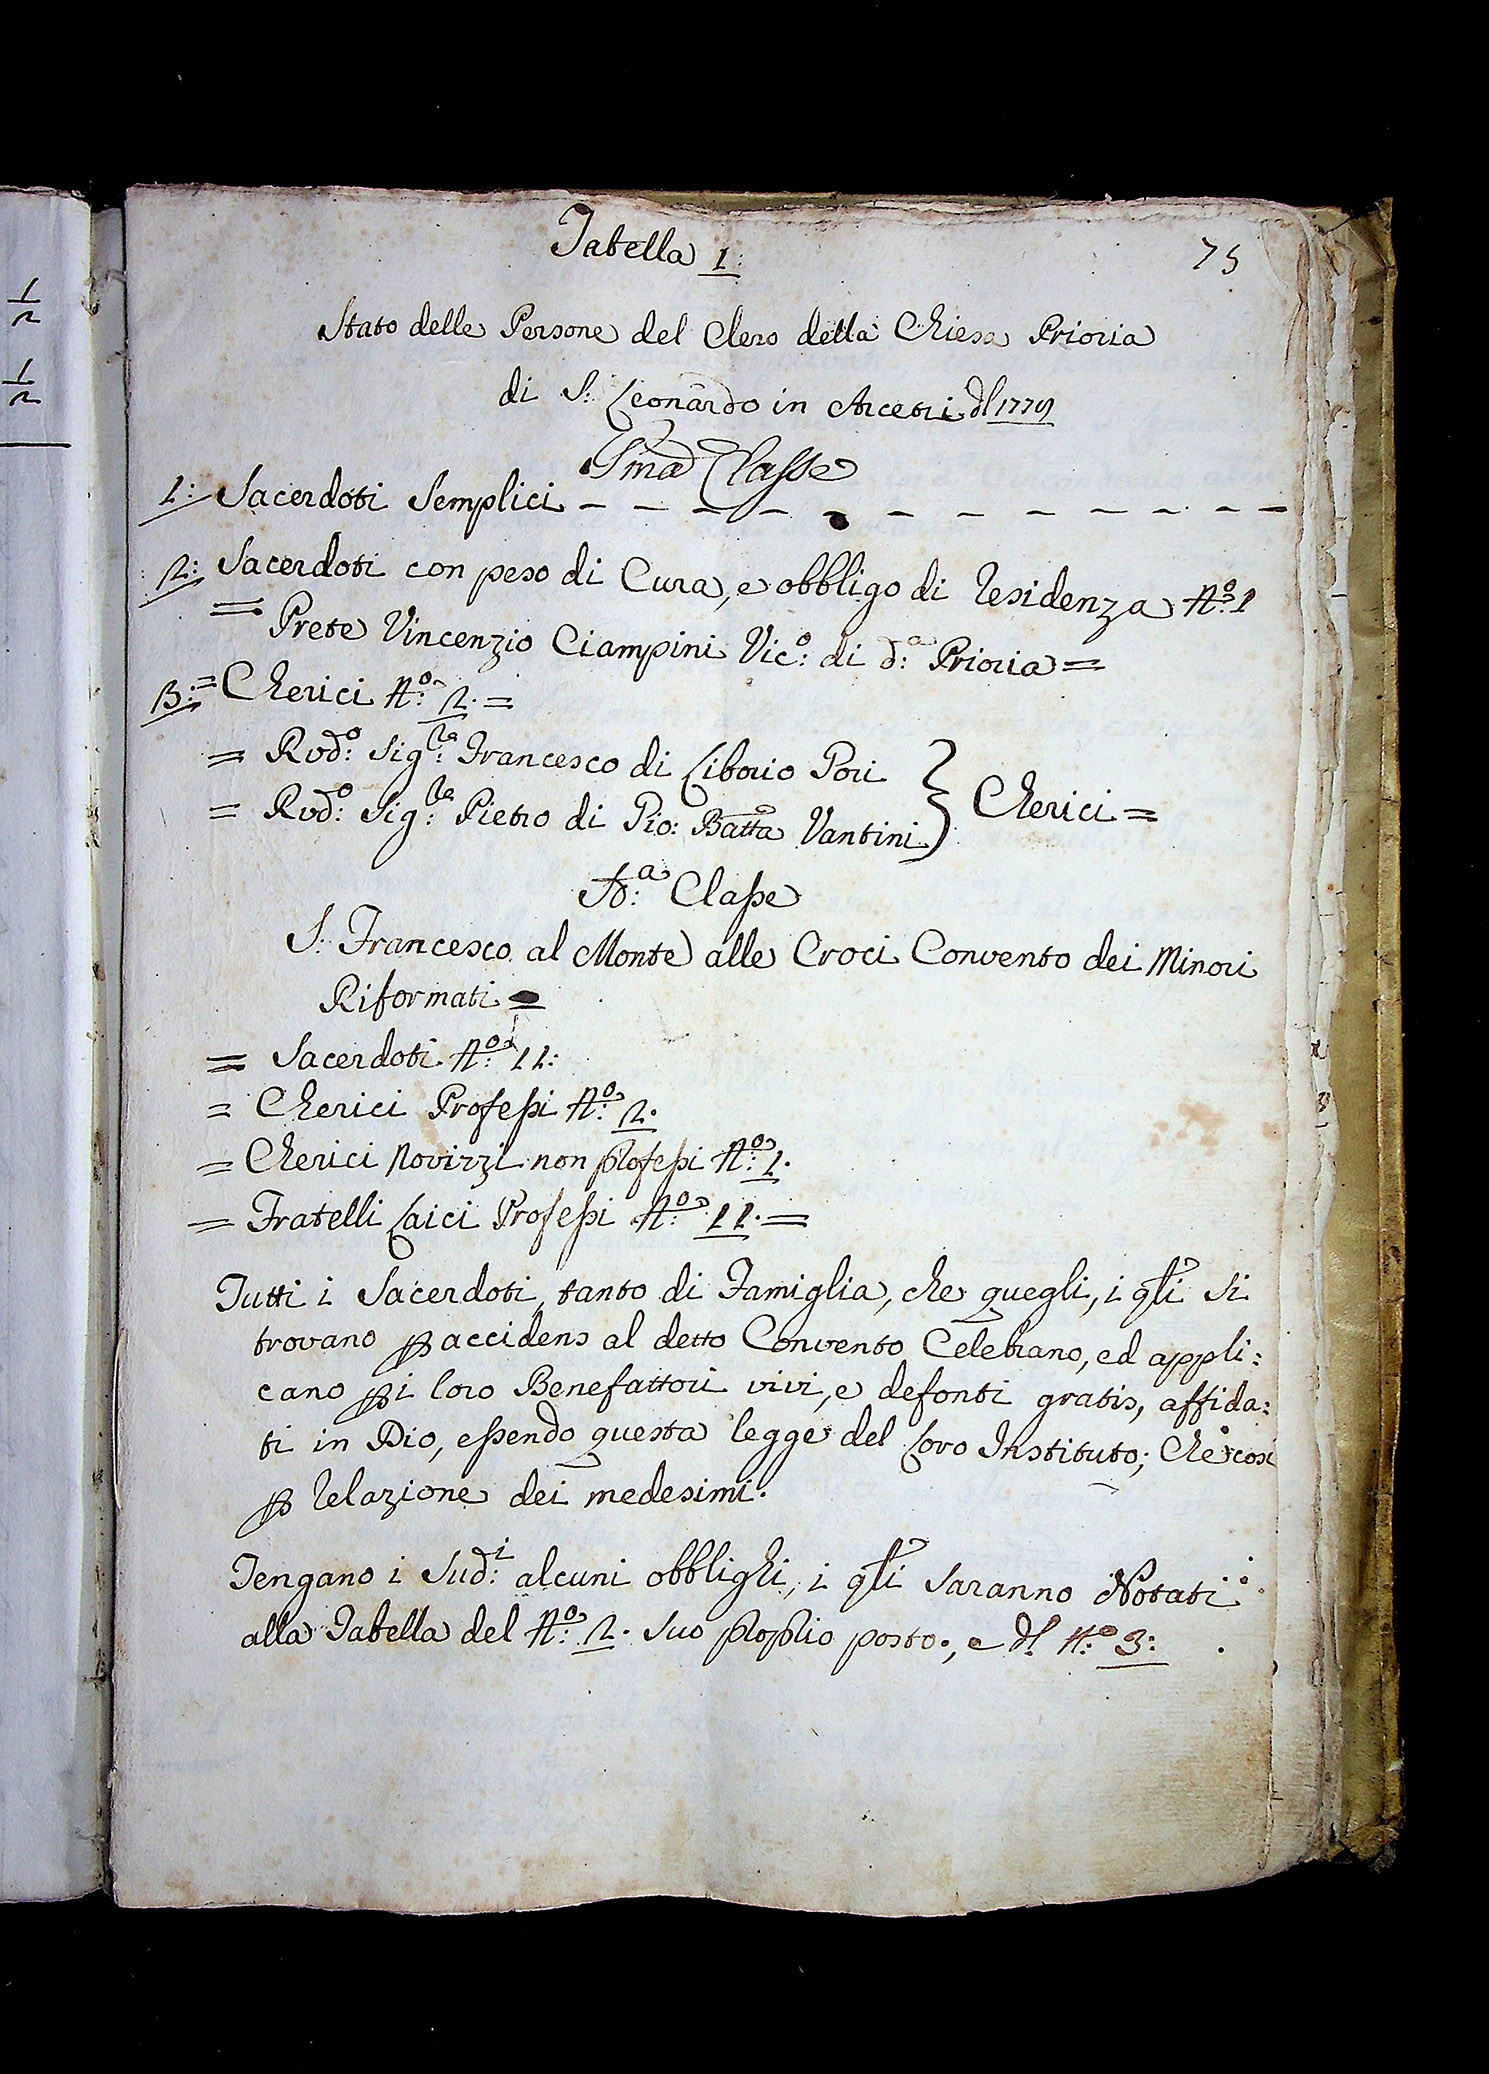 Tabella 1:
75
Stato delle Persone del Clero della Chiesa Prioria
di S: Leonardo in Arcetri dl 1779
Pma Classe
1: Sacerdoti Semplici - - - - - - - - - - - -
2: Sacerdoti con peso di Cura, e obbligo di Residenza No: 1
= Prete Vincenzio Ciampini Vico: di da: Prioria =
3: = Cherici No: 2. =
= Rvdo: Sigre: Francesco di Liborio Pori
= Rvdo: Sigre: Pietro di Gio: Batta Vantini } Cherici =
Classe
S: Francesco al Monte alle Croci Convento dei Minori
Riformati =
= Sacerdoti No: 11:
= Cherici Professi No: 2.
= Cherici Novizzi non professi No: 1.
= Fratelli Laici Professi No: 11. =
Tutti i Sacerdoti, tanto di Famiglia, che quegli, i qli si
trovano p accidens al detto Convento Celebrano, ed appli:
cano p i loro Benefattori vivi, e defonti gratis, affida:
ti in Dio, essendo questa legge del Loro Instituto; Che così
p relazione dei medesimi.
Tengano i Sudi: alcuni obblighi, i qli saranno Notati
alla Tabella del No: 2. suo proprio posto., e dl No: 3:
1/2
1/2